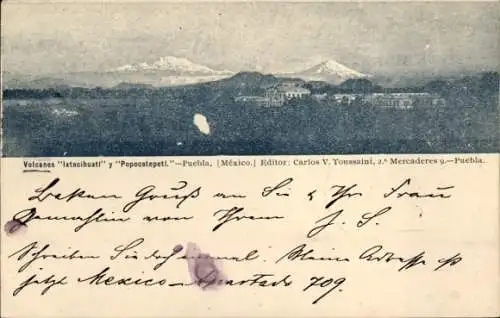 Volcanes "Istacihuatl" y "Popocatepetl."—Puebla, [México.] Editor: Carlos V. Toussaint, 2.ª Mercaderes 9.—Puebla.
Besten Gruß an Sie & Ihr Frau
Gemahlin von Ihrem J. S.
Schreiben Sie doch einmal. Meine Adresse ist
jetzt Mexico - Apartado 709.